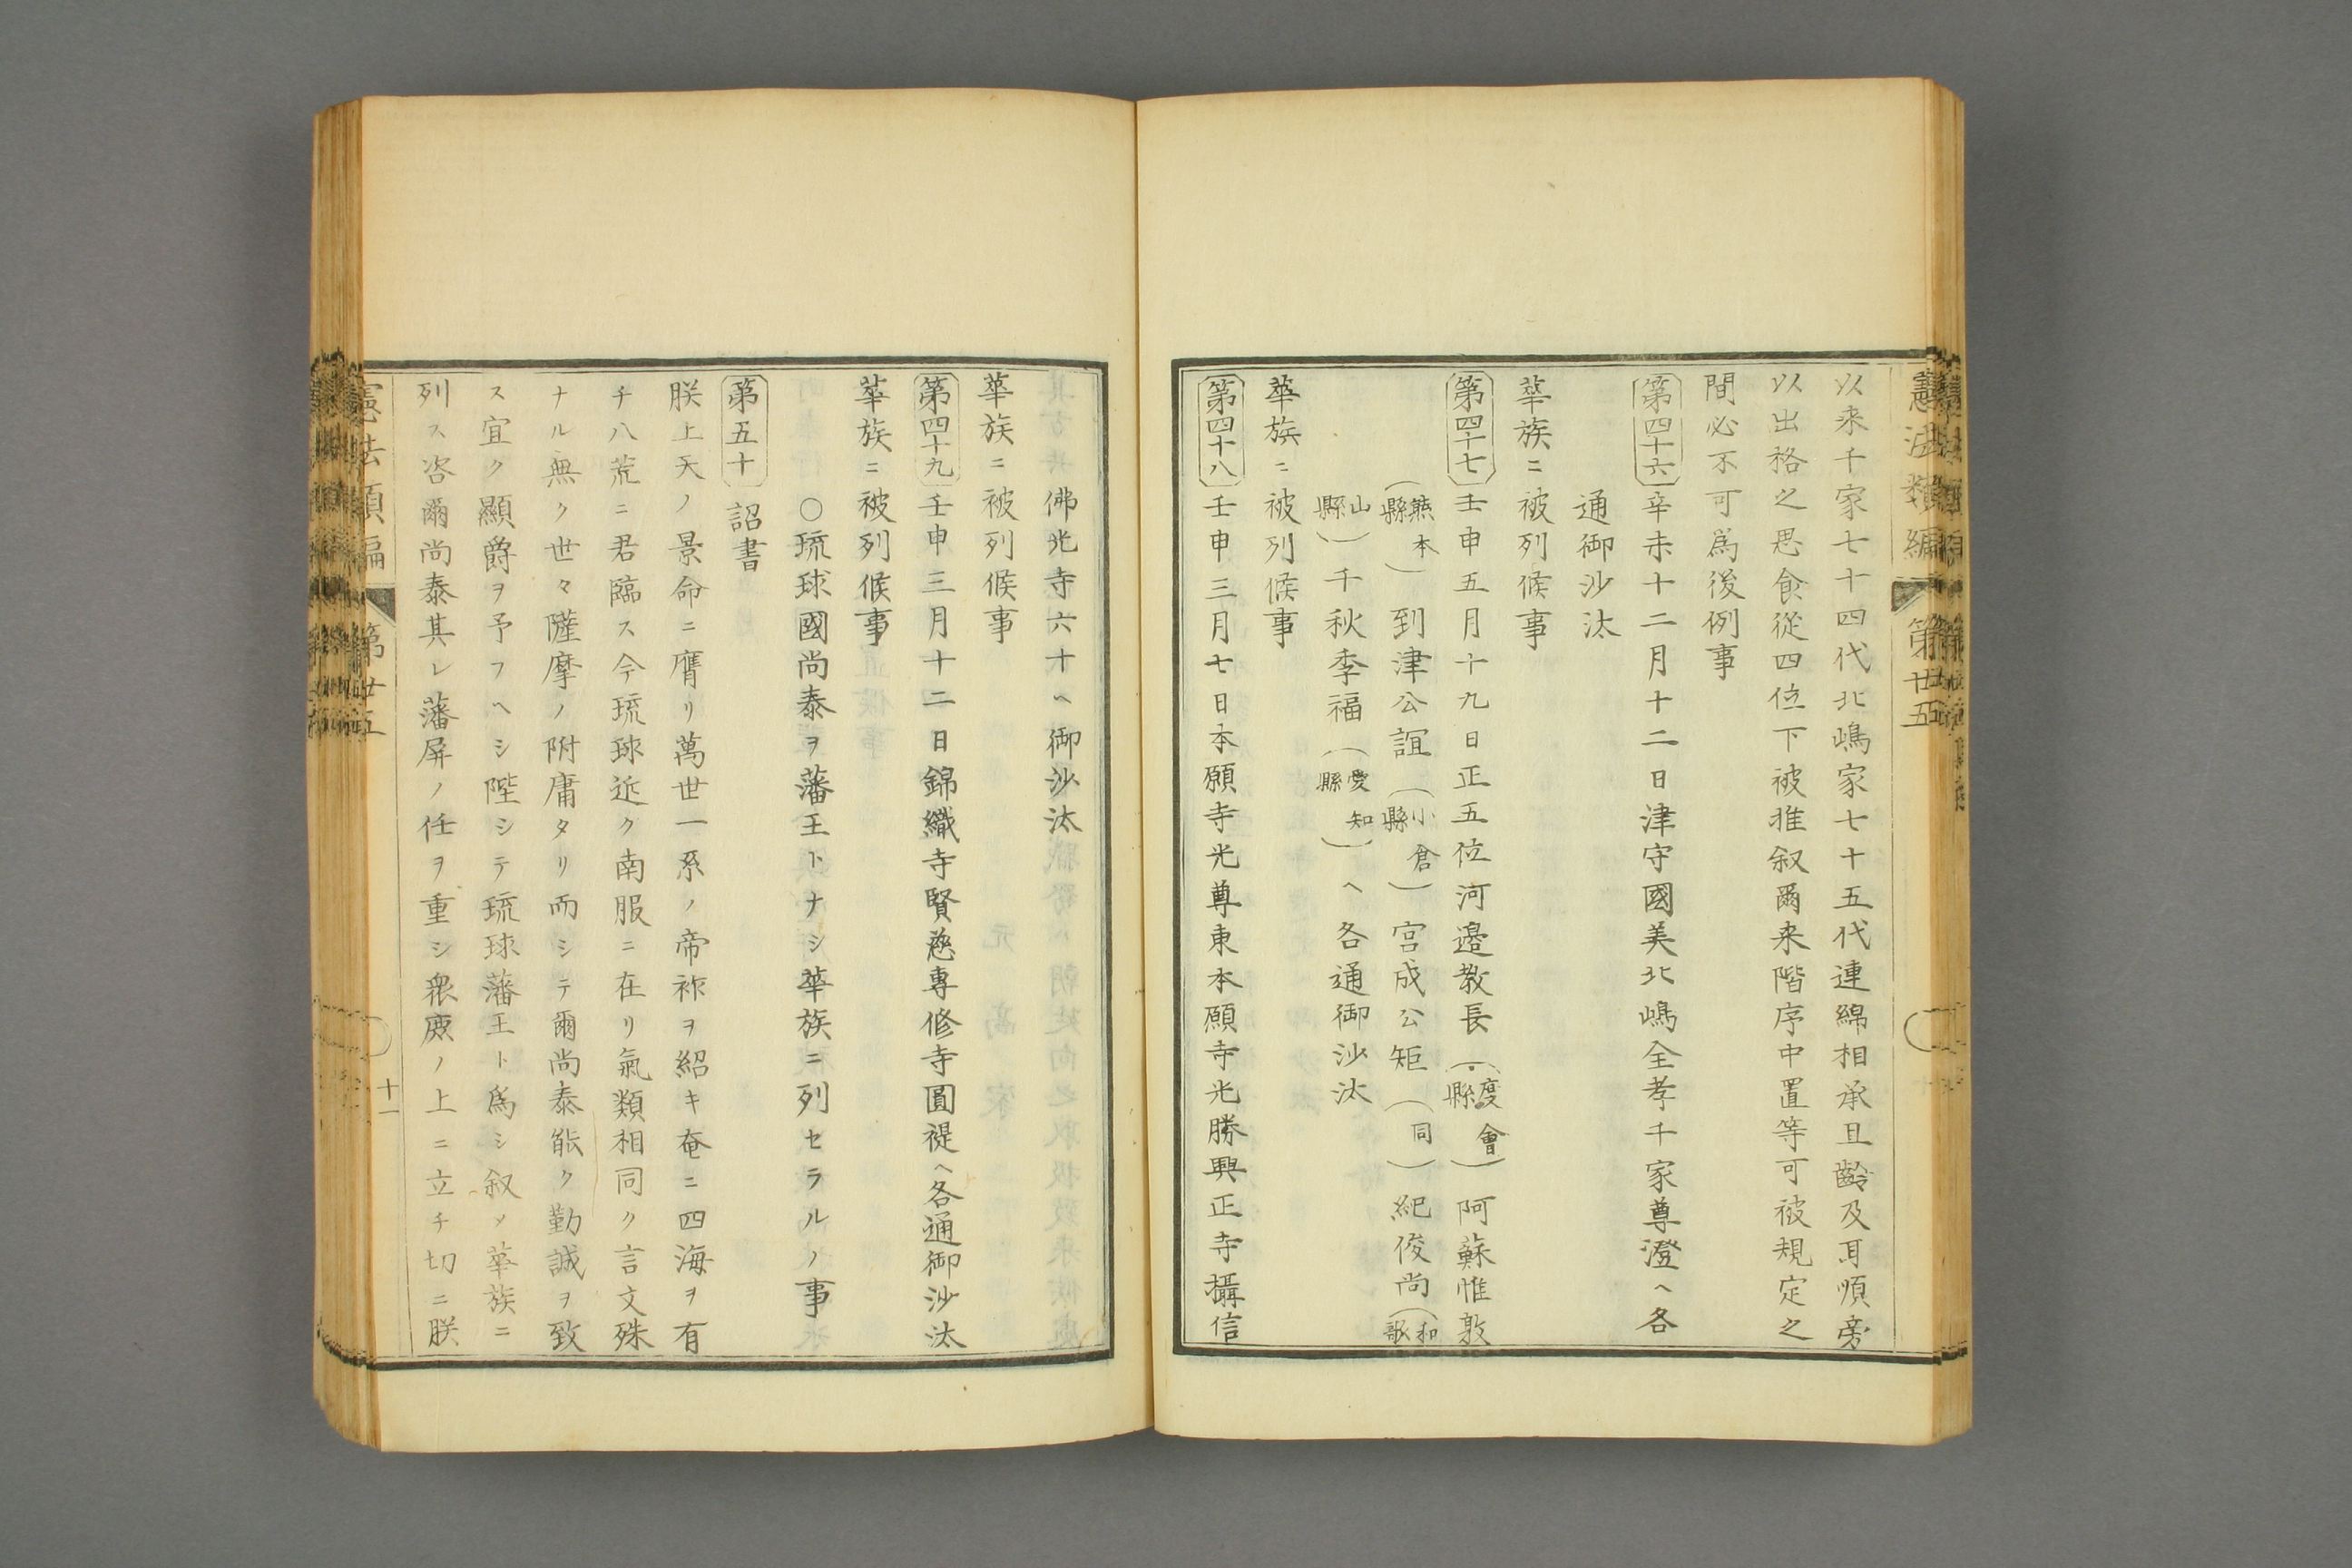 憲法類編 第廿五
以来千家七十四代北嶋家七十五代連綿相承且齡及耳順旁
以出格之思食從四位下被推叙爾来階序中置等可被規定之
間必不可爲後例事
第四十六 辛未十二月十二日津守國美北嶋全孝千家尊澄ヘ各
通御沙汰
華族ニ被列候事
第四十七 壬申五月十九日正五位河邊教長（度會縣）阿蘇惟敦
（熊本縣）到津公誼（小倉縣）宮成公矩（同）紀俊尚（和歌
山縣）千秋季福（愛知縣）ヘ各通御沙汰
華族ニ被列候事
第四十八 壬申三月七日本願寺光尊東本願寺光勝興正寺攝信
佛光寺六十ヘ御沙汰
華族ニ被列候事
第四十九 壬申三月十二日錦織寺賢慈專修寺圓禔ヘ各通御沙汰
華族ニ被列候事
〇琉球國尚泰ヲ藩王トナシ華族ニ列セラルノ事
第五十 詔書
朕上天ノ景命ニ膺リ萬世一系ノ帝祚ヲ紹キ奄ニ四海ヲ有
チ八荒ニ君臨ス今琉球近ク南服ニ在リ氣類相同ク言文殊
ナル無ク世々薩摩ノ附庸タリ而シテ爾尚泰能ク勤誠ヲ致
ス宜ク顯爵ヲ予フヘシ陞シテ琉球藩王ト爲シ叙メ華族ニ
列ス咨爾尚泰其レ藩屏ノ任ヲ重シ衆庶ノ上ニ立チ切ニ朕
憲法類編 第廿五 十一